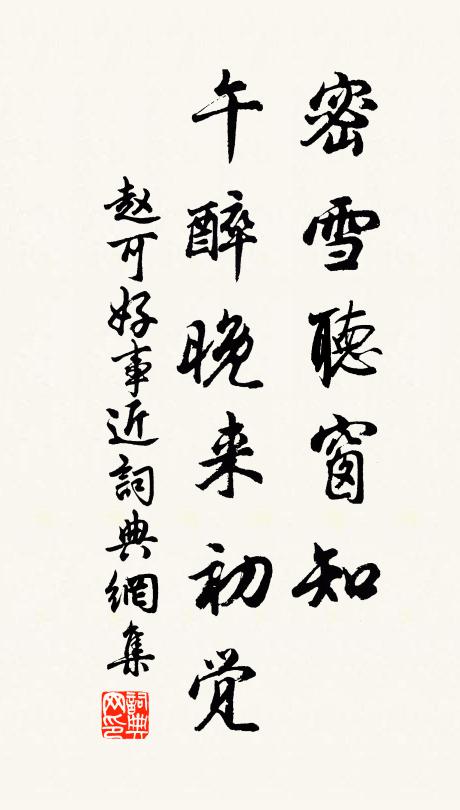 密雪聽窗知
午醉晚来初觉
赵可好事近詞典網集
詞典网印